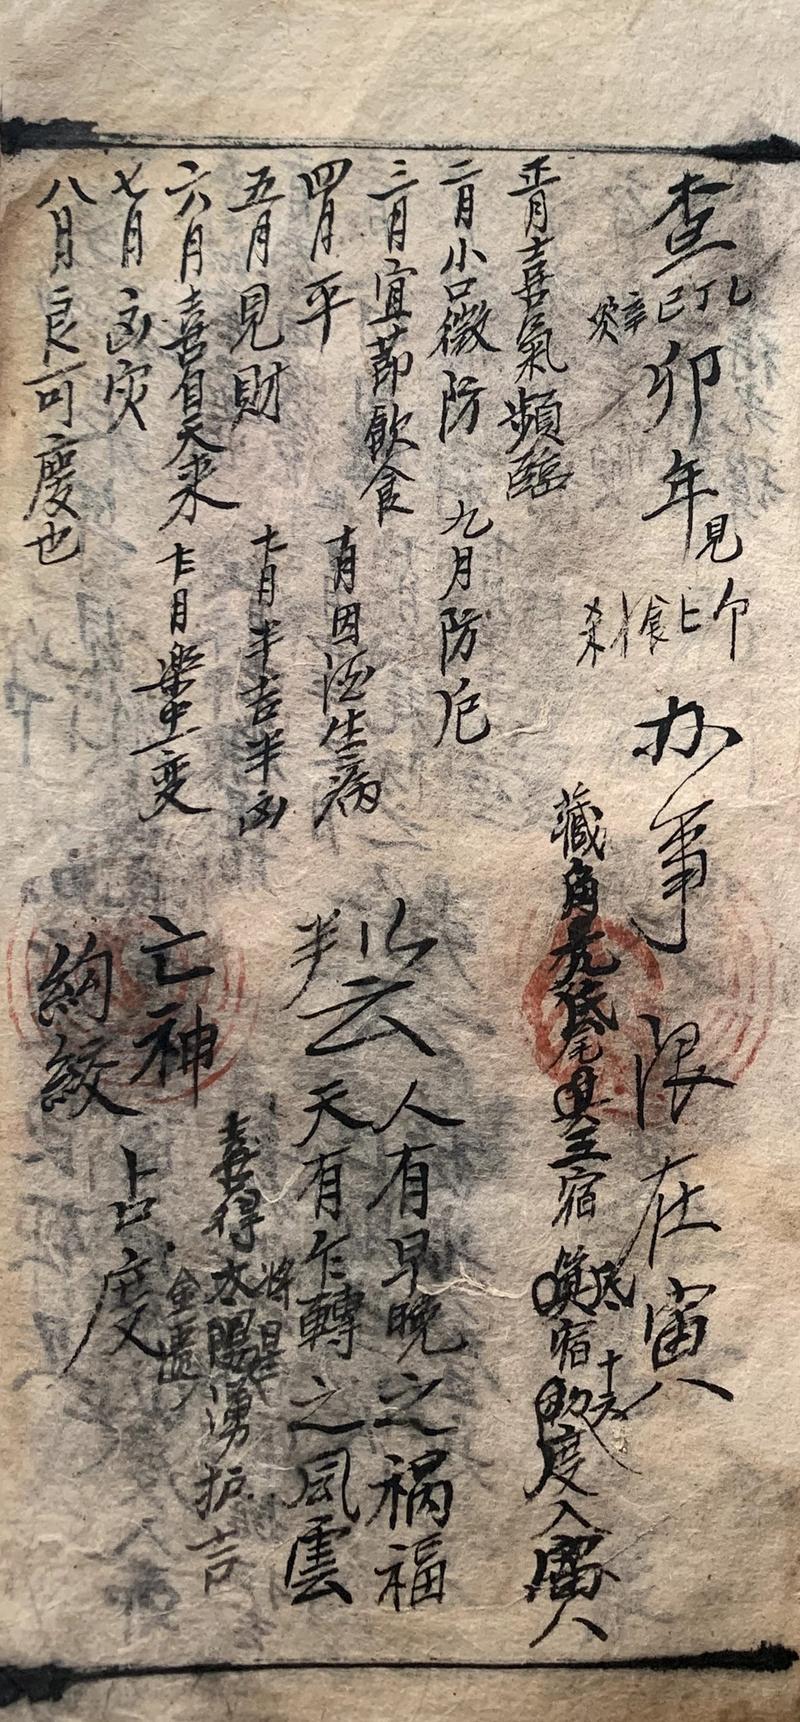 查
乙丁己辛癸
卯年見
卩上食才杀
办事限在寅
藏角亢氐尾箕五宿
宿
度入寅
正月喜氣頻臨
二月小口微防
三月宜節飲食
四月平
五月見財
六月喜自天来
七月凶灾
八月良可慶也
九月防厄
十月因酒生病
十一月半吉半凶
十二月樂中一变
判以云
人有早晚之禍福
天有乍轉之風雲
喜得太陽
将星
金匱
湧护吉
亡神
絇絞
占度